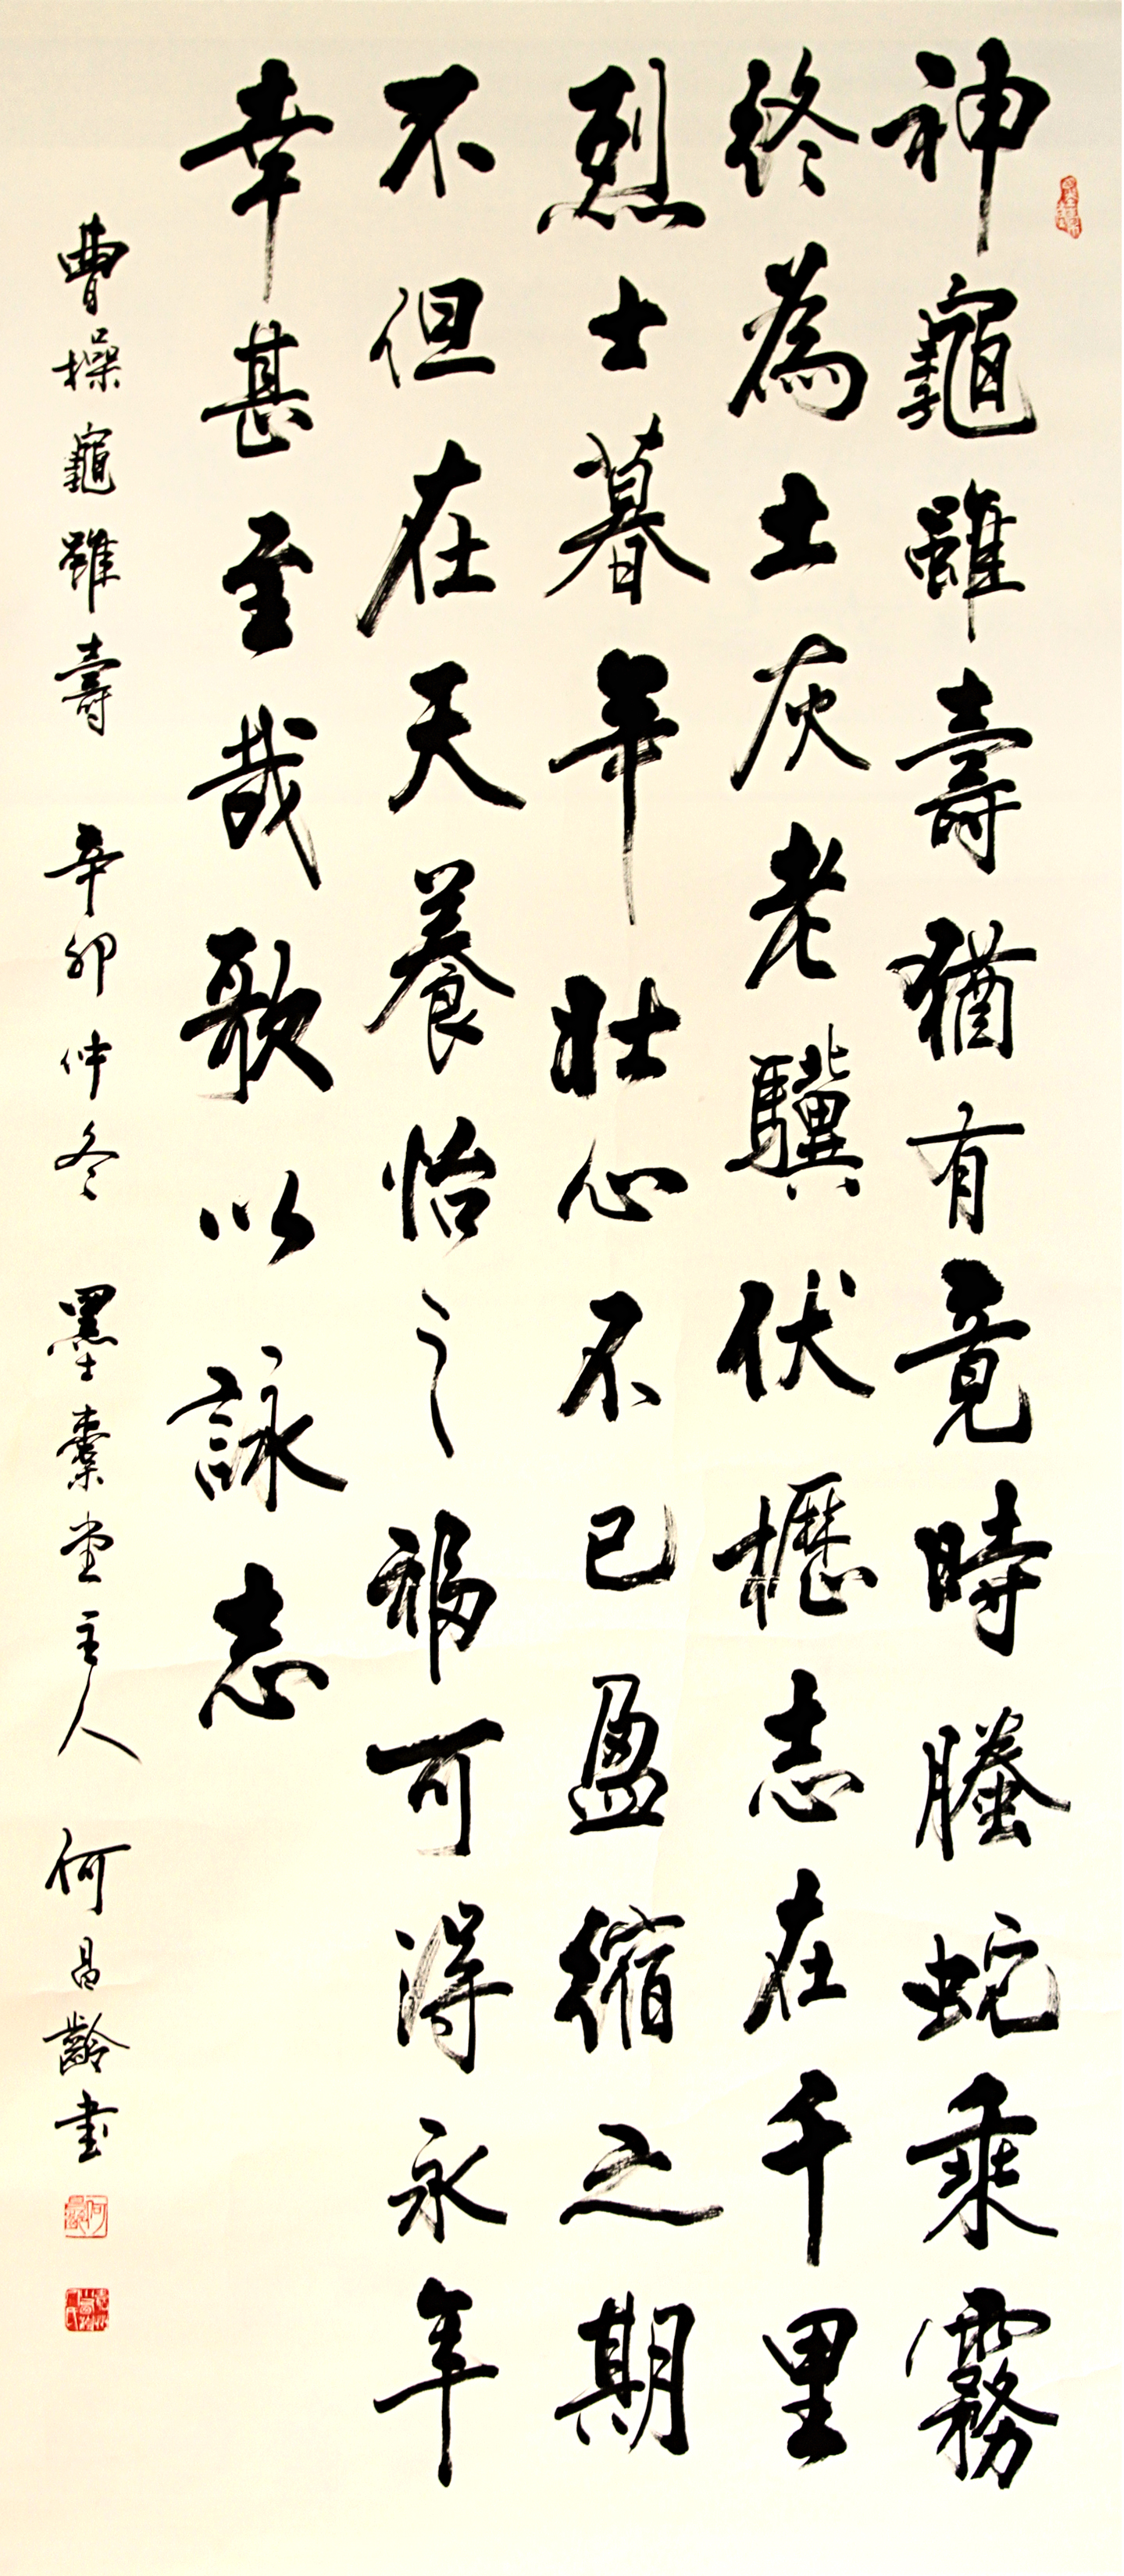 神龜雖壽猶有竟時螣蛇乘霧
終為土灰老驥伏櫪志在千里
烈士暮年壯心不已盈縮之期
不但在天養怡之福可得永年
幸甚至哉歌以詠志
曹操龜雖壽 辛卯仲冬 墨橐堂主人 何昌齡書